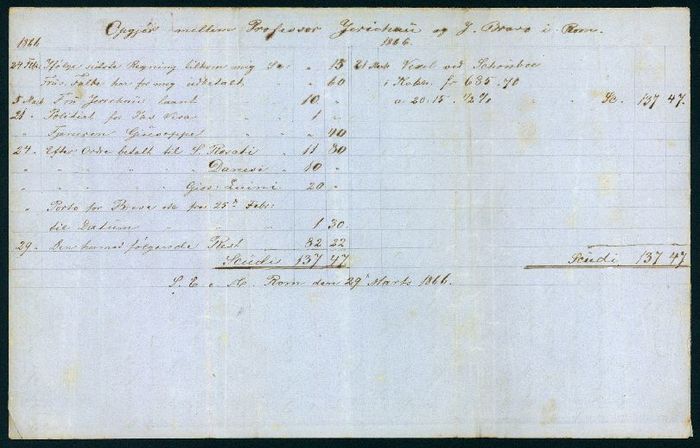 Opgjör mellem Professor Jerichau og J. Bravo i Rom.
1866
1866.
24 Feb. Ifölge sidste Regning tilkom mig Sc " 15
Frü. Falbe har for mig udbetalt " 60
5 Marts Frü Jerichau laant 10 "
21 " Politiet for Pas Visa " 1 "
" Tjeneren Giuseppe " " 40
27 " Efter Ordre betalt til S. Rosati " 11 30
" " " " " Danesi " 10 "
" " " " " Gius: Luini 20 "
" Porto for Breve etc fra 25d Febr.
til Datum " " 1 30
29 " Den hermed fölgende Rest " 82 22
Scudi 137 47
21 Marts Vexel ved Schönber
i Kobr. for 685.70
a 20.15. 1/2 % " Sc. 137 47.
Scudi, 137 47
S. E. & O. Rom den 29d Marts 1866.